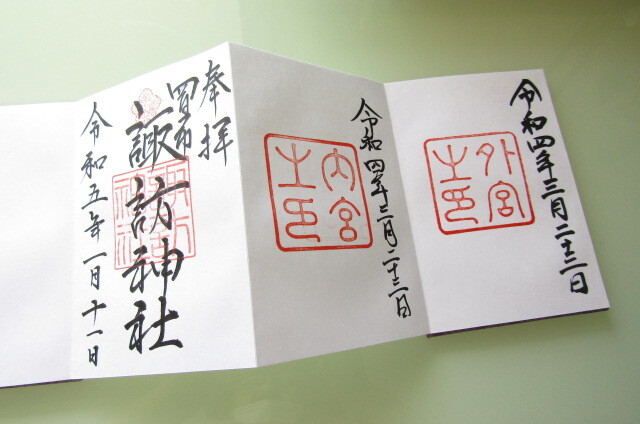 令和四年三月二十三日
外宮
之印
令和四年三月二十三日
内宮
之印
奉拝
四日市
諏訪神社
令和五年一月十一日